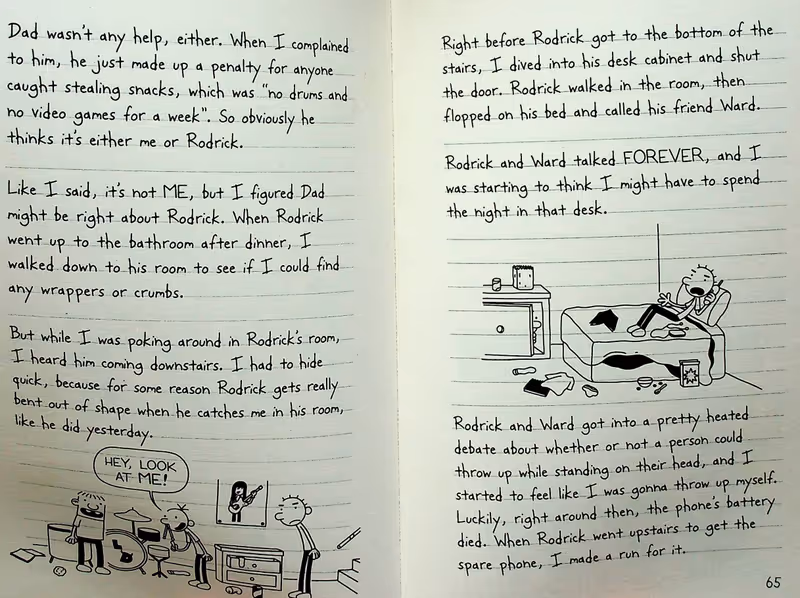 Dad wasn't any help, either. When I complained
to him, he just made up a penalty for anyone
caught stealing snacks, which was "no drums and
no video games for a week". So obviously he
thinks it's either me or Rodrick.
Like I said, it's not ME, but I figured Dad
might be right about Rodrick. When Rodrick
went up to the bathroom after dinner, I
walked down to his room to see if I could find
any wrappers or crumbs.
But while I was poking around in Rodrick's room,
I heard him coming downstairs. I had to hide
quick, because for some reason Rodrick gets really
bent out of shape when he catches me in his room,
like he did yesterday.
HEY, LOOK
AT ME!
Right before Rodrick got to the bottom of the
stairs, I dived into his desk cabinet and shut
the door. Rodrick walked in the room, then
flopped on his bed and called his friend Ward.
Rodrick and Ward talked FOREVER, and I
was starting to think I might have to spend
the night in that desk.
Rodrick and Ward got into a pretty heated
debate about whether or not a person could
throw up while standing on their head, and I
started to feel like I was gonna throw up myself.
Luckily, right around then, the phone's battery
died. When Rodrick went upstairs to get the
spare phone, I made a run for it.
65